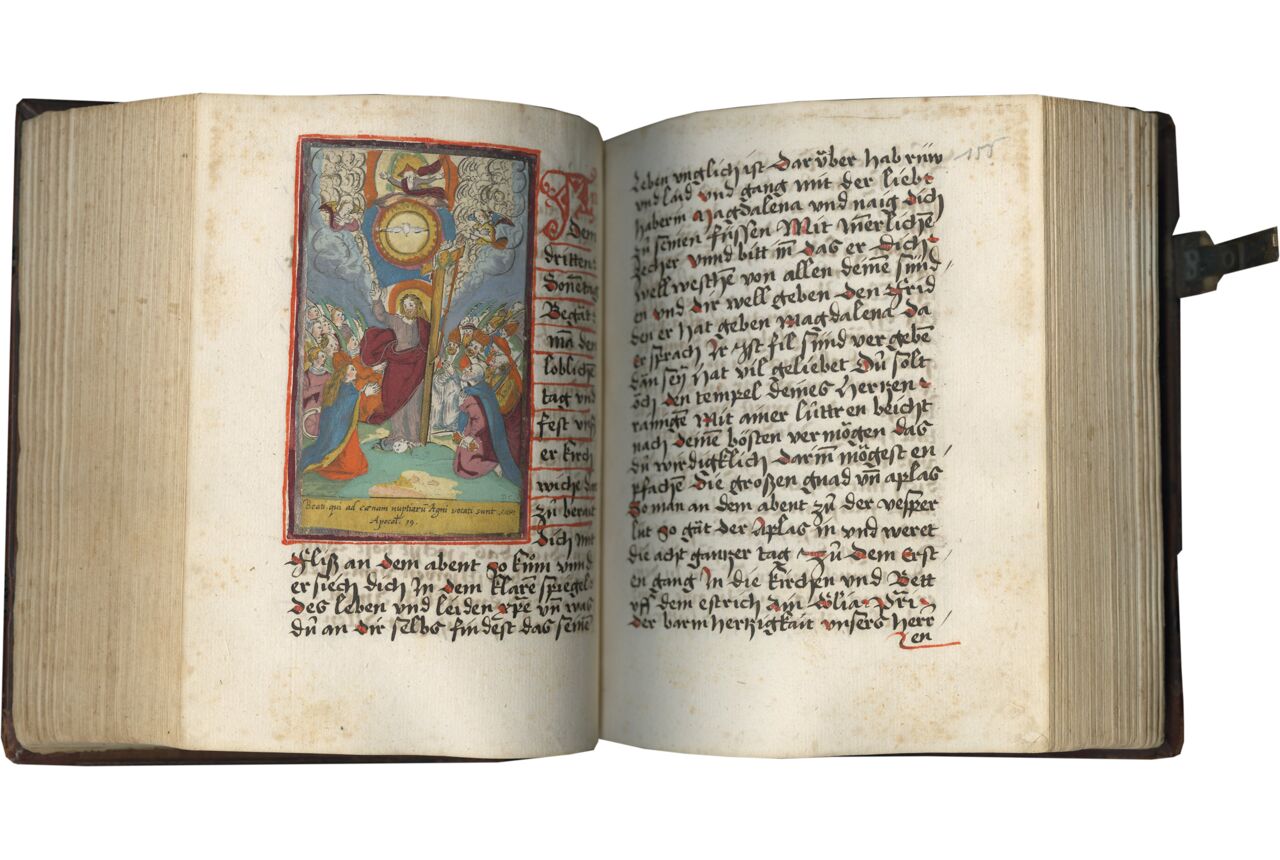 An
Dem
dritten
Sonnetag
Begat
man den
loblichen
tag vnd
fest vns
er kirch
wiche dar
zů berait
Dich mit
Beati qui ad cœnam nuptiarũ Agni vocati sunt.
Apocal. 19.
fliß an dem abent so kům vnnd
ersiech dich In dem klarẽ spiegel
Des leben vnd leiden xp̃e vñ was
dů an dir selbs findest das seinẽ
155
leben vnglich ist Darüber hab rüw
vnd laid vnd gang mit der liebe
haberin Magdalena vnd naig dich
zů seinen füssen Mit Inerlichẽ
zecher vnnd bitt in das er dich
well weschẽ von allen deinẽ sünd
en vnd dir well geben den frid
den er hat geben Magdalena Da
er sprach Ir ist fil sünd vergebẽ
dan sey hat vil geliebet Dů solt
och den tempel deines hertzen
rainigẽ Mit ainer luttren beicht
nach deinẽ bösten vermögen das
dů wirdigklich darin mögest en
pfachen die großen gnad vñ aplas
So man an dem abent zů der vesper
lüt so gät der Aplas in vnd weret
die acht gantzer tag Zů dem Erst
en gang In die kirchen vnd Bett
vff dem estrich ain
der barmhertzigkait vnsers herr
en